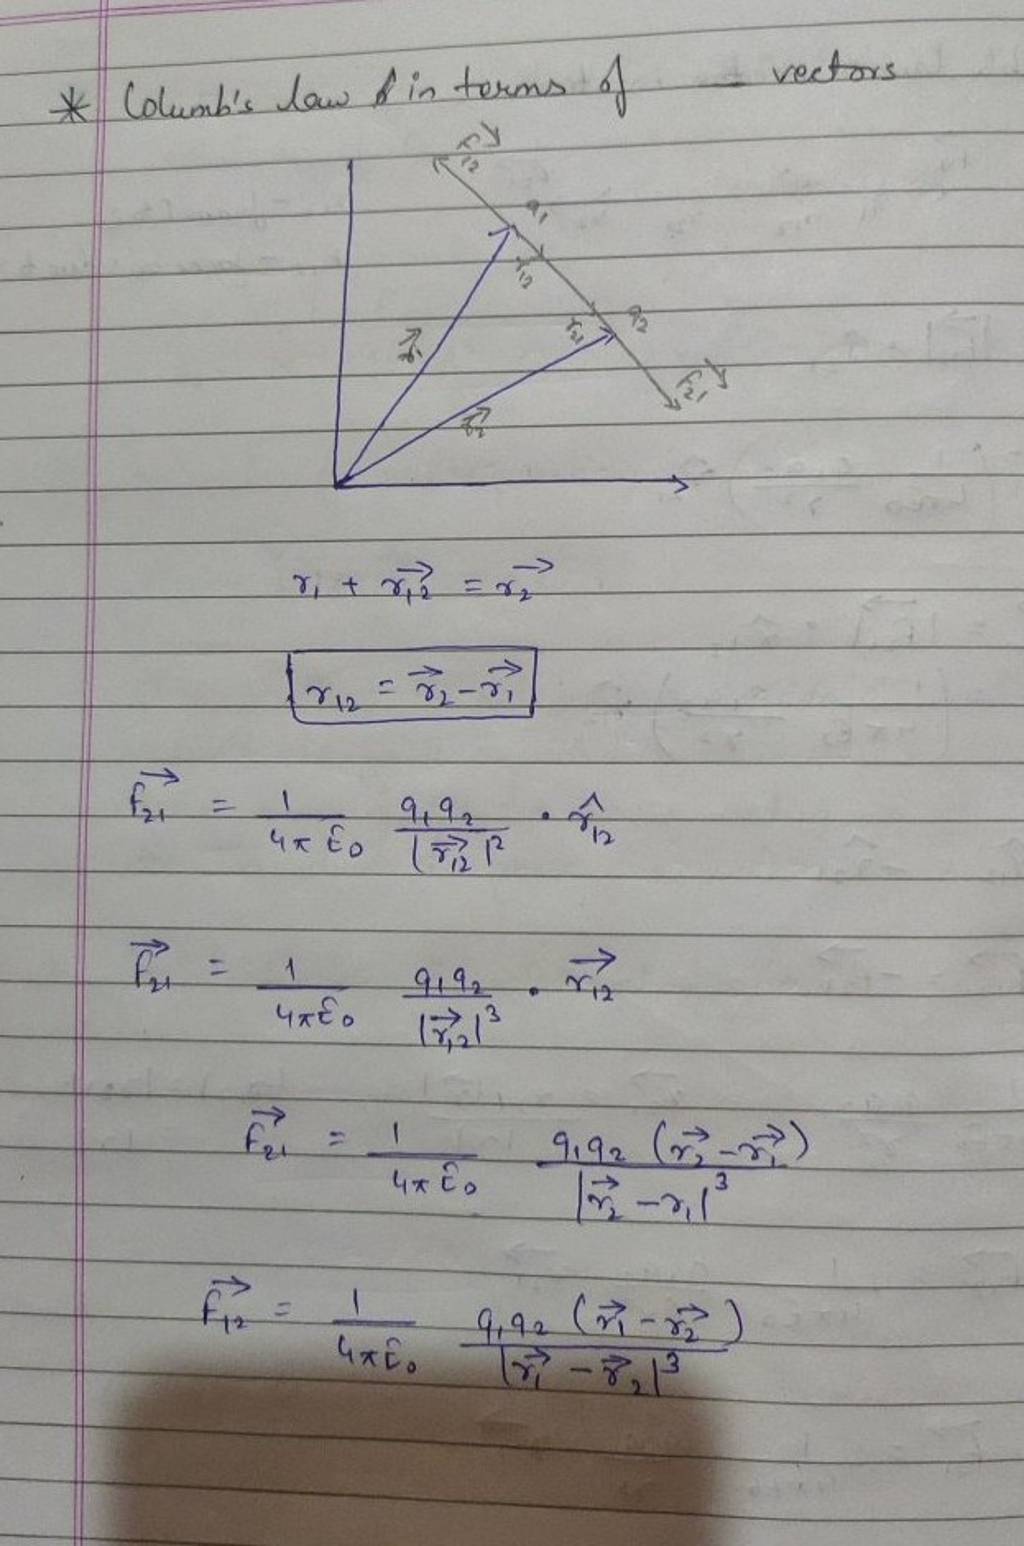 * Columb's law in terms of _ vectors
F₁₂→
q₁
r₁₂
r₁→
r₂₁
q₂
F₂₁→
r₂→
r₁ + r₁₂→ = r₂→
r₁₂ = r₂→ - r₁→
F₂₁→ = 1/4πε₀ q₁q₂/|r₁₂→|² · r̂₁₂
F₂₁→ = 1/4πε₀ q₁q₂/|r₁₂→|³ · r₁₂→
F₂₁→ = 1/4πε₀ q₁q₂ (r₂→ - r₁→)/|r₂→ - r₁|³
F₁₂→ = 1/4πε₀ q₁q₂ (r₁→ - r₂→)/|r₁→ - r₂→|³